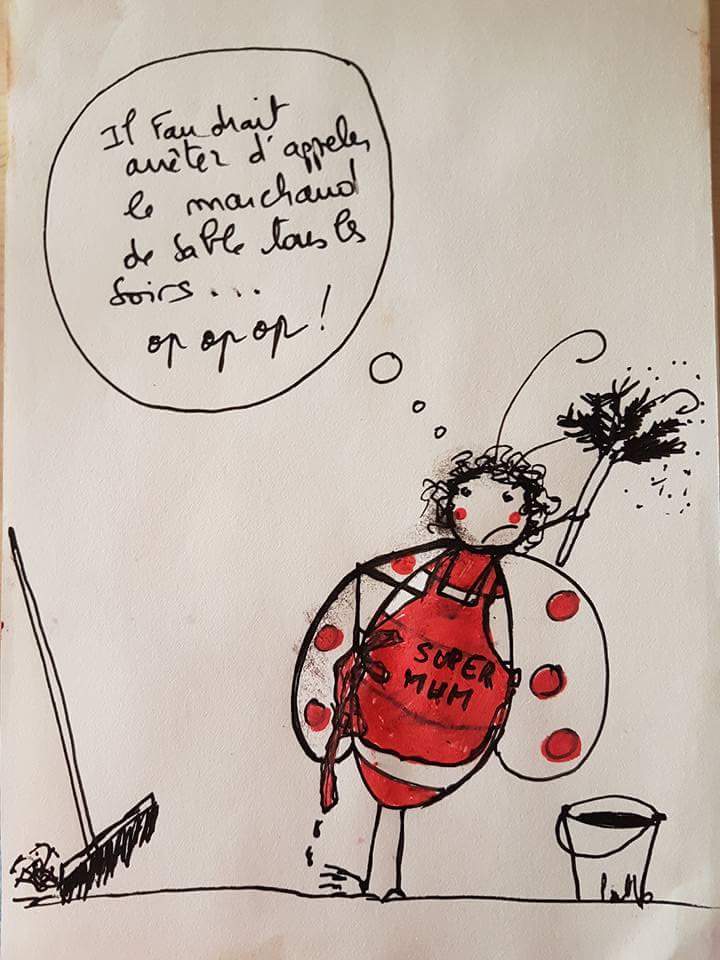 Il Faudrait
arrêter d'appeler
le marchand
de sable tous les
soirs...
op op op!
SUPER
MUM